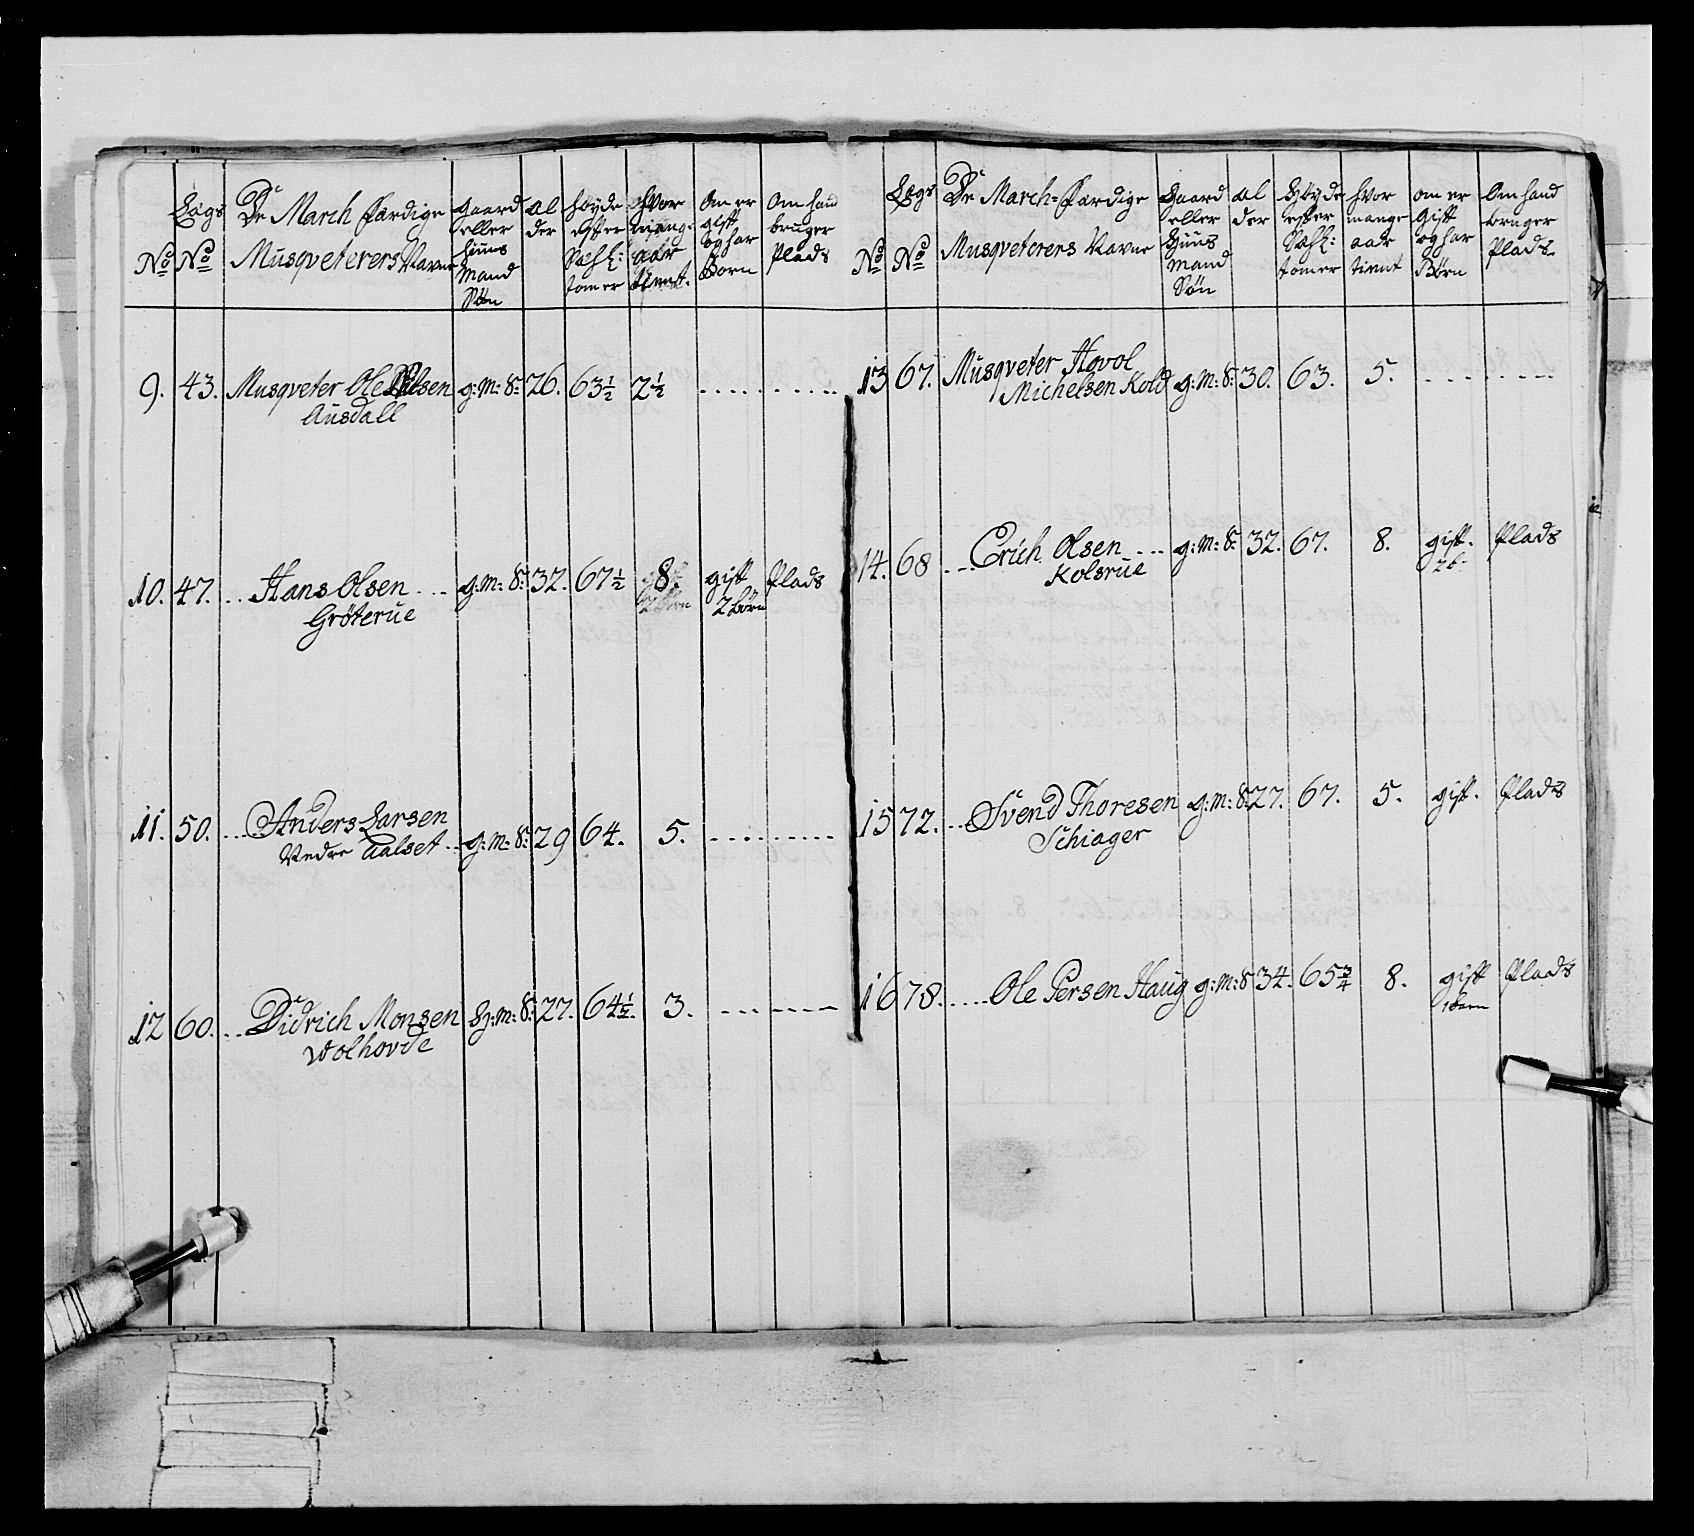 No
Lægs No
De March færdige Musqveterers Navne
gaard eller huus mand Søn
al der
høyde efter Sæsk: tommer
hvor mang: aar tient.
Om er gift og har Børn
Om hand bruger Plads
9. 43. Musqveter Ole Olsen g: M: S: 26. 63½ 2½
Ausdall
10. 47. Hans Olsen g: M: S: 32. 67½ 8. gift Plads
Grøterue 2 börn
11. 50. Anders Larsen
Nedre Aalset g: M: S: 29 64. 5.
12 60. Didrich Monsen H: M: S: 27. 64½. 3.
Wolhovde
No
Lægs No
De March-færdige Musqveterers Navne
Gaard eller Huus Mand Søn
al der
Høyde efter Sæsk: tommer
hvor mange aar tient
om er Gift og har Børn
Om hand bruger Plads.
13 67. Musqveter Hovol
Michelsen Kold g: M: S: 30. 63. 5.
14. 68 Erich Olsen g: M: S: 32. 67. 8. gift. Plads
Kolsrue 2 b.
15 72. Svend Thoresen g: M: S: 27. 67. 5. gift. Plads
Schiager
16 78. Ole Persen Haug g: M: S 34. 65¾ 8. gift Plads
1 barn